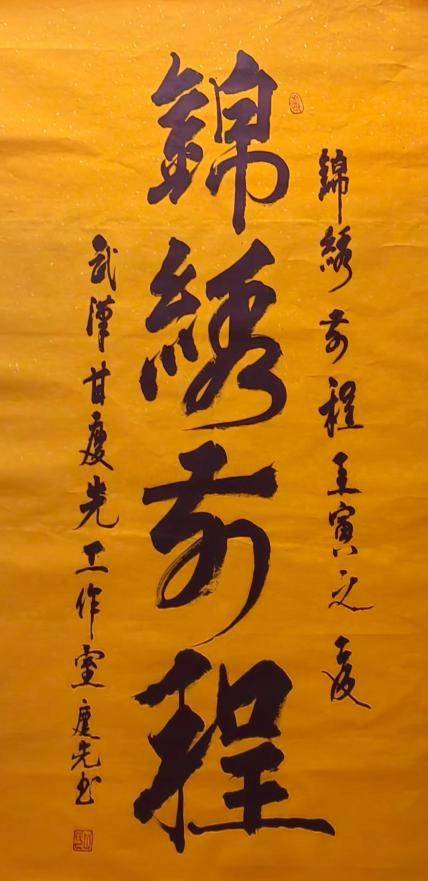 錦綉前程壬寅之夏
錦綉前程
武漢甘慶先工作室慶先书